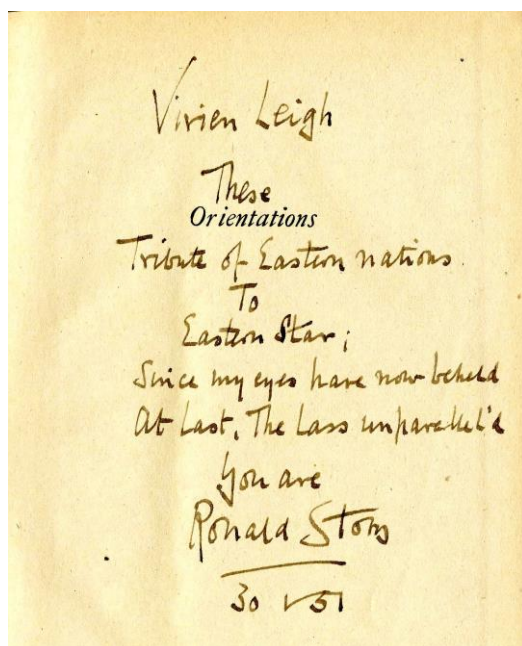 Vivien Leigh
These
Orientations
Tribute of Eastern nations
To
Eastern Star;
Since my eyes have now beheld
At Last, The Lass unparallel'd
You are
Ronald Storrs
30 V 51